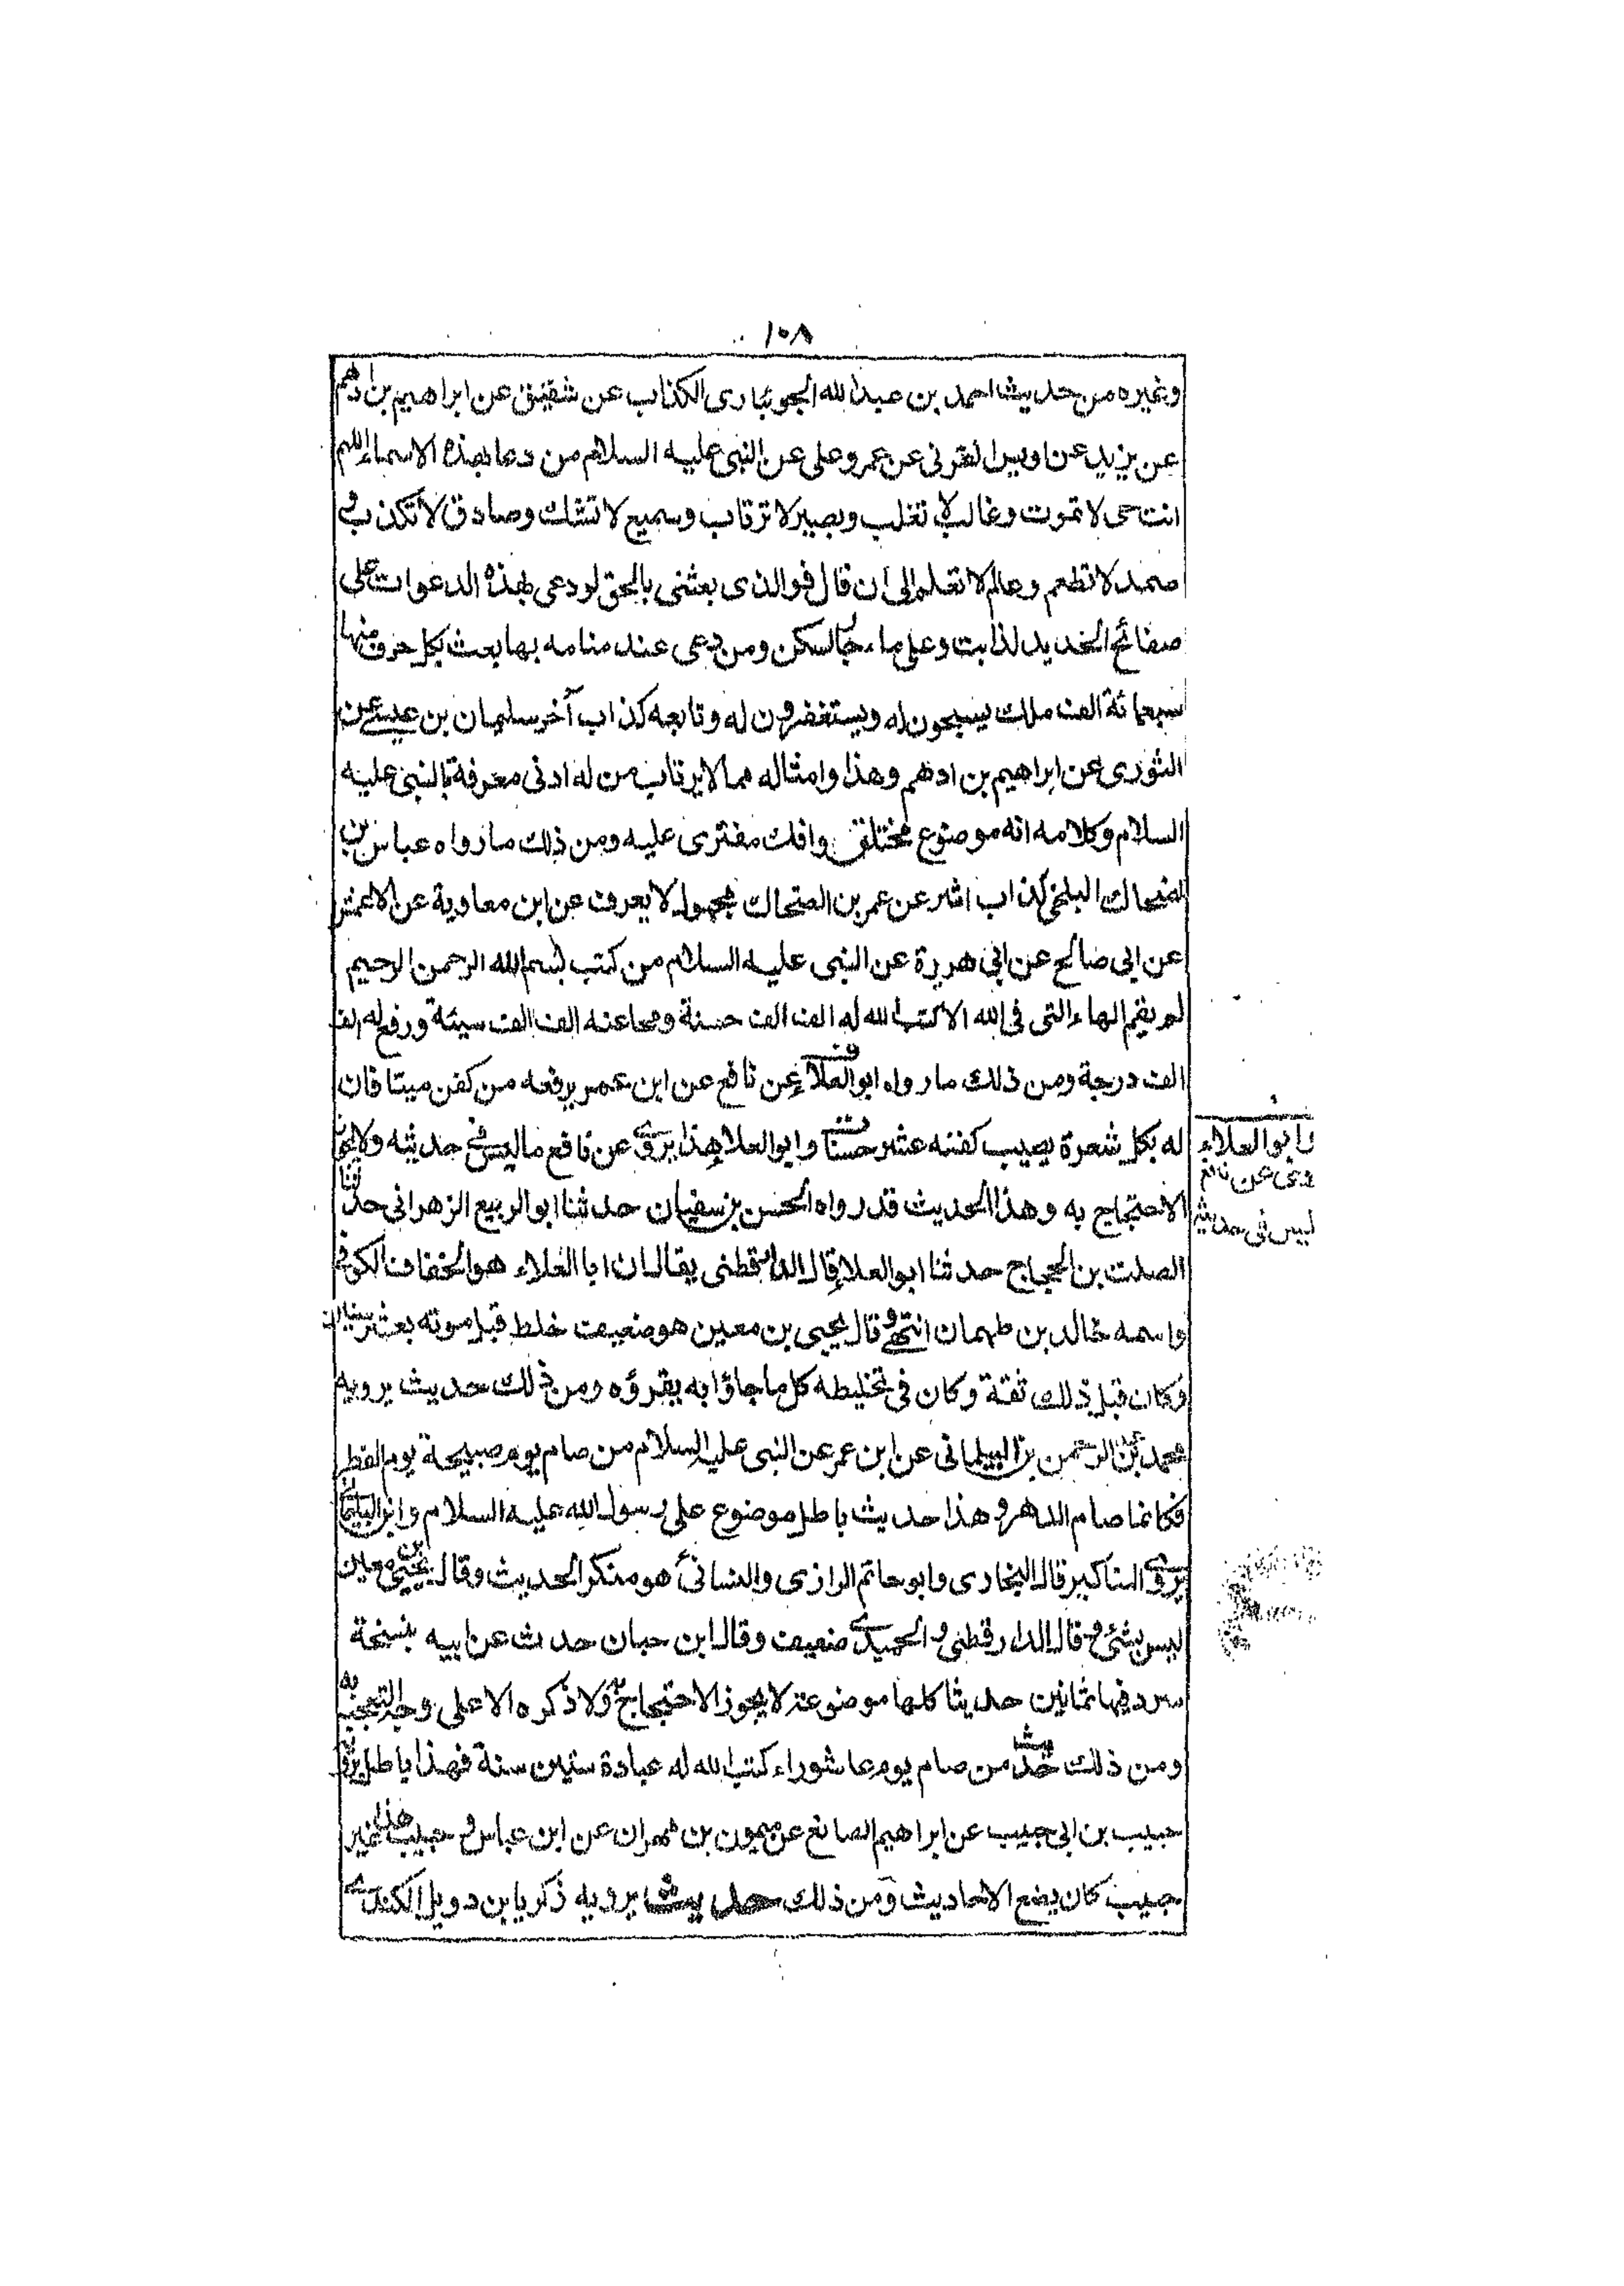 ١٠٨
وغيره من حديث احمد بن عبد الله الجويباري الكذاب عن شقيق عن ابراهيم بن ادهم
عن يزيد عن اويس القرنى عن عمر وعلى عن النبى عليه السلام من دعا بهذه الاسماء اللهم
انت حى لا تموت وغالب لا تغلب وبصير لا ترتاب وسميع لا تشك وصادق لا تكذب و
صمد لا تطعم وعالم لا تعلم الى ان قال فوالذى بعثنى بالحق لو دعى بهذه الدعوات على
صفائح الحديد لذابت وعلى ماء جار لسكن ومن دعى عند منامه بها بعث بكل حرف منها
سبعمائة الف ملك يسبحون له ويستغفرون له وتابعه كذاب آخر سليمان بن عيسى عن
الثورى عن ابراهيم بن ادهم وهذا وامثاله مما لا يرتاب من له ادنى معرفة بالنبى عليه
السلام وكلامه انه موضوع مختلق وافك مفترى عليه ومن ذلك ما رواه عباس بن
الضحاك البلخى كذاب اشر عن عمر بن الضحاك مجهول لا يعرف عن ابن معاوية عن الاعمش
عن ابى صالح عن ابى هريرة عن النبى عليه السلام من كتب بسم الله الرحمن الرحيم
لم يقم الهاء التى فى الله الا كتب الله له الف الف حسنة ومحا عنه الف الف سيئة ورفع له الف
الف درجة ومن ذلك ما رواه ابو العلاء عن نافع عن ابن عمر يرفعه من كفن ميتا فان
له بكل شعرة يصيب كفنه عشر حسنات وابو العلا هذا يروى عن نافع ما ليس فى حديثه ولا يجوز
الاحتجاج به وهذا الحديث قد رواه الحسن بن سفيان حدثنا ابو الربيع الزهرانى حدثنا
الصلت بن الحجاج حدثنا ابو العلا قال الدارقطنى يقال ان ابا العلاء هو الخفاف الكوفى
واسمه خالد بن طهمان انتهى وقال يحيى بن معين هو ضعيف خلط قبل موته بعشر سنين
وكان قبل ذلك ثقة وكان فى تخليطه كل ما جاؤا به يقرؤه ومن ذلك حديث يرويه
محمد بن عبد الرحمن بن البيلمانى عن ابن عمر عن النبى عليه السلام من صام يوم صبيحة يوم الفطر
فكانما صام الدهر وهذا حديث باطل موضوع على رسول الله عليه السلام وابن البيلمانى
يروى المناكير قال البخارى وابو حاتم الرازى والنسائى هو منكر الحديث وقال يحيى بن معين
ليس بشئ وقال الدارقطنى والحميدى ضعيف وقال ابن حبان حدث عن ابيه بنسخة
سرد فيها ثمانين حديثا كلها موضوعة لا يجوز الاحتجاج به ولا ذكره الا على وجه التعجب به
ومن ذلك حديث من صام يوم عاشوراء كتب الله له عبادة ستين سنة فهذا باطل يرويه
حبيب بن ابى حبيب عن ابراهيم الصائغ عن ميمون بن مهران عن ابن عباس و حبيب هذا غير
حبيب كان يضع الاحاديث ومن ذلك حديث يرويه زكريا بن دويل الكندى
ابو العلاء
وى عن نافع
ليس فى حديثه